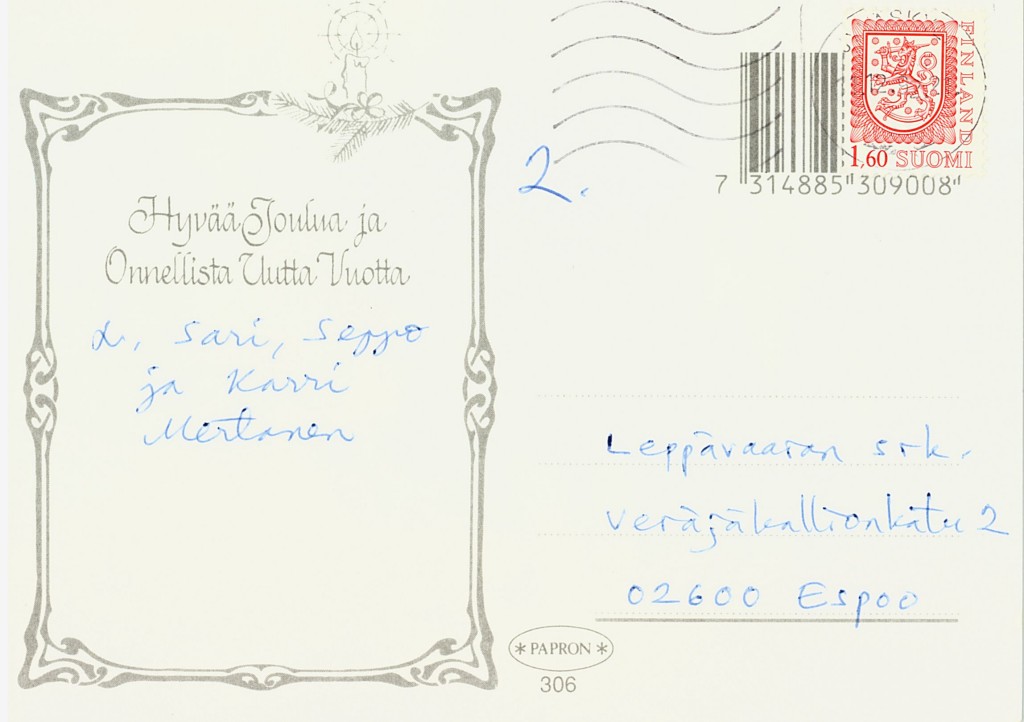 Hyvää Joulua ja
Onnellista Uutta Vuotta
L, Sari, Seppo
ja Karri
Mertanen
2.
FINLAND
1,60 SUOMI
7 314885 309008
Leppävaaran srk.
Veräjäkallionkatu 2
02600 Espoo
* PAPRON *
306